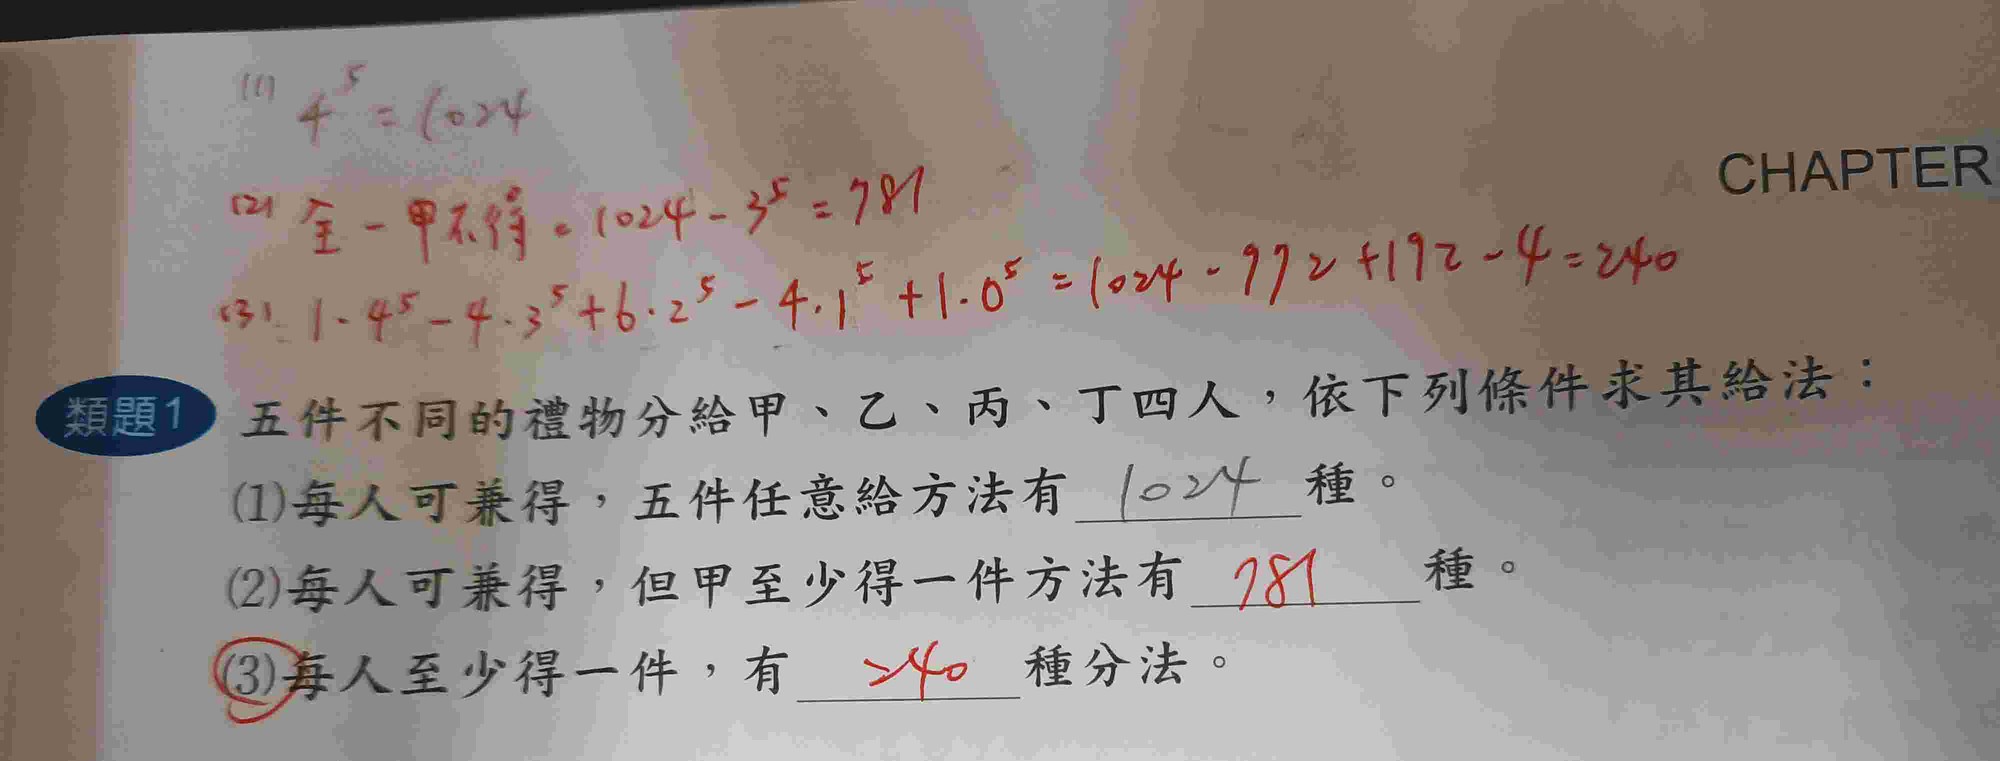 (1) 4⁵ = 1024
(2) 全 - 甲不得 = 1024 - 3⁵ = 781
(3) 1·4⁵ - 4·3⁵ + 6·2⁵ - 4·1⁵ + 1·0⁵ = 1024 - 972 + 192 - 4 = 240
CHAPTER
類題1 五件不同的禮物分給甲、乙、丙、丁四人，依下列條件求其給法：
(1)每人可兼得，五件任意給方法有 1024 種。
(2)每人可兼得，但甲至少得一件方法有 781 種。
(3)每人至少得一件，有 240 種分法。